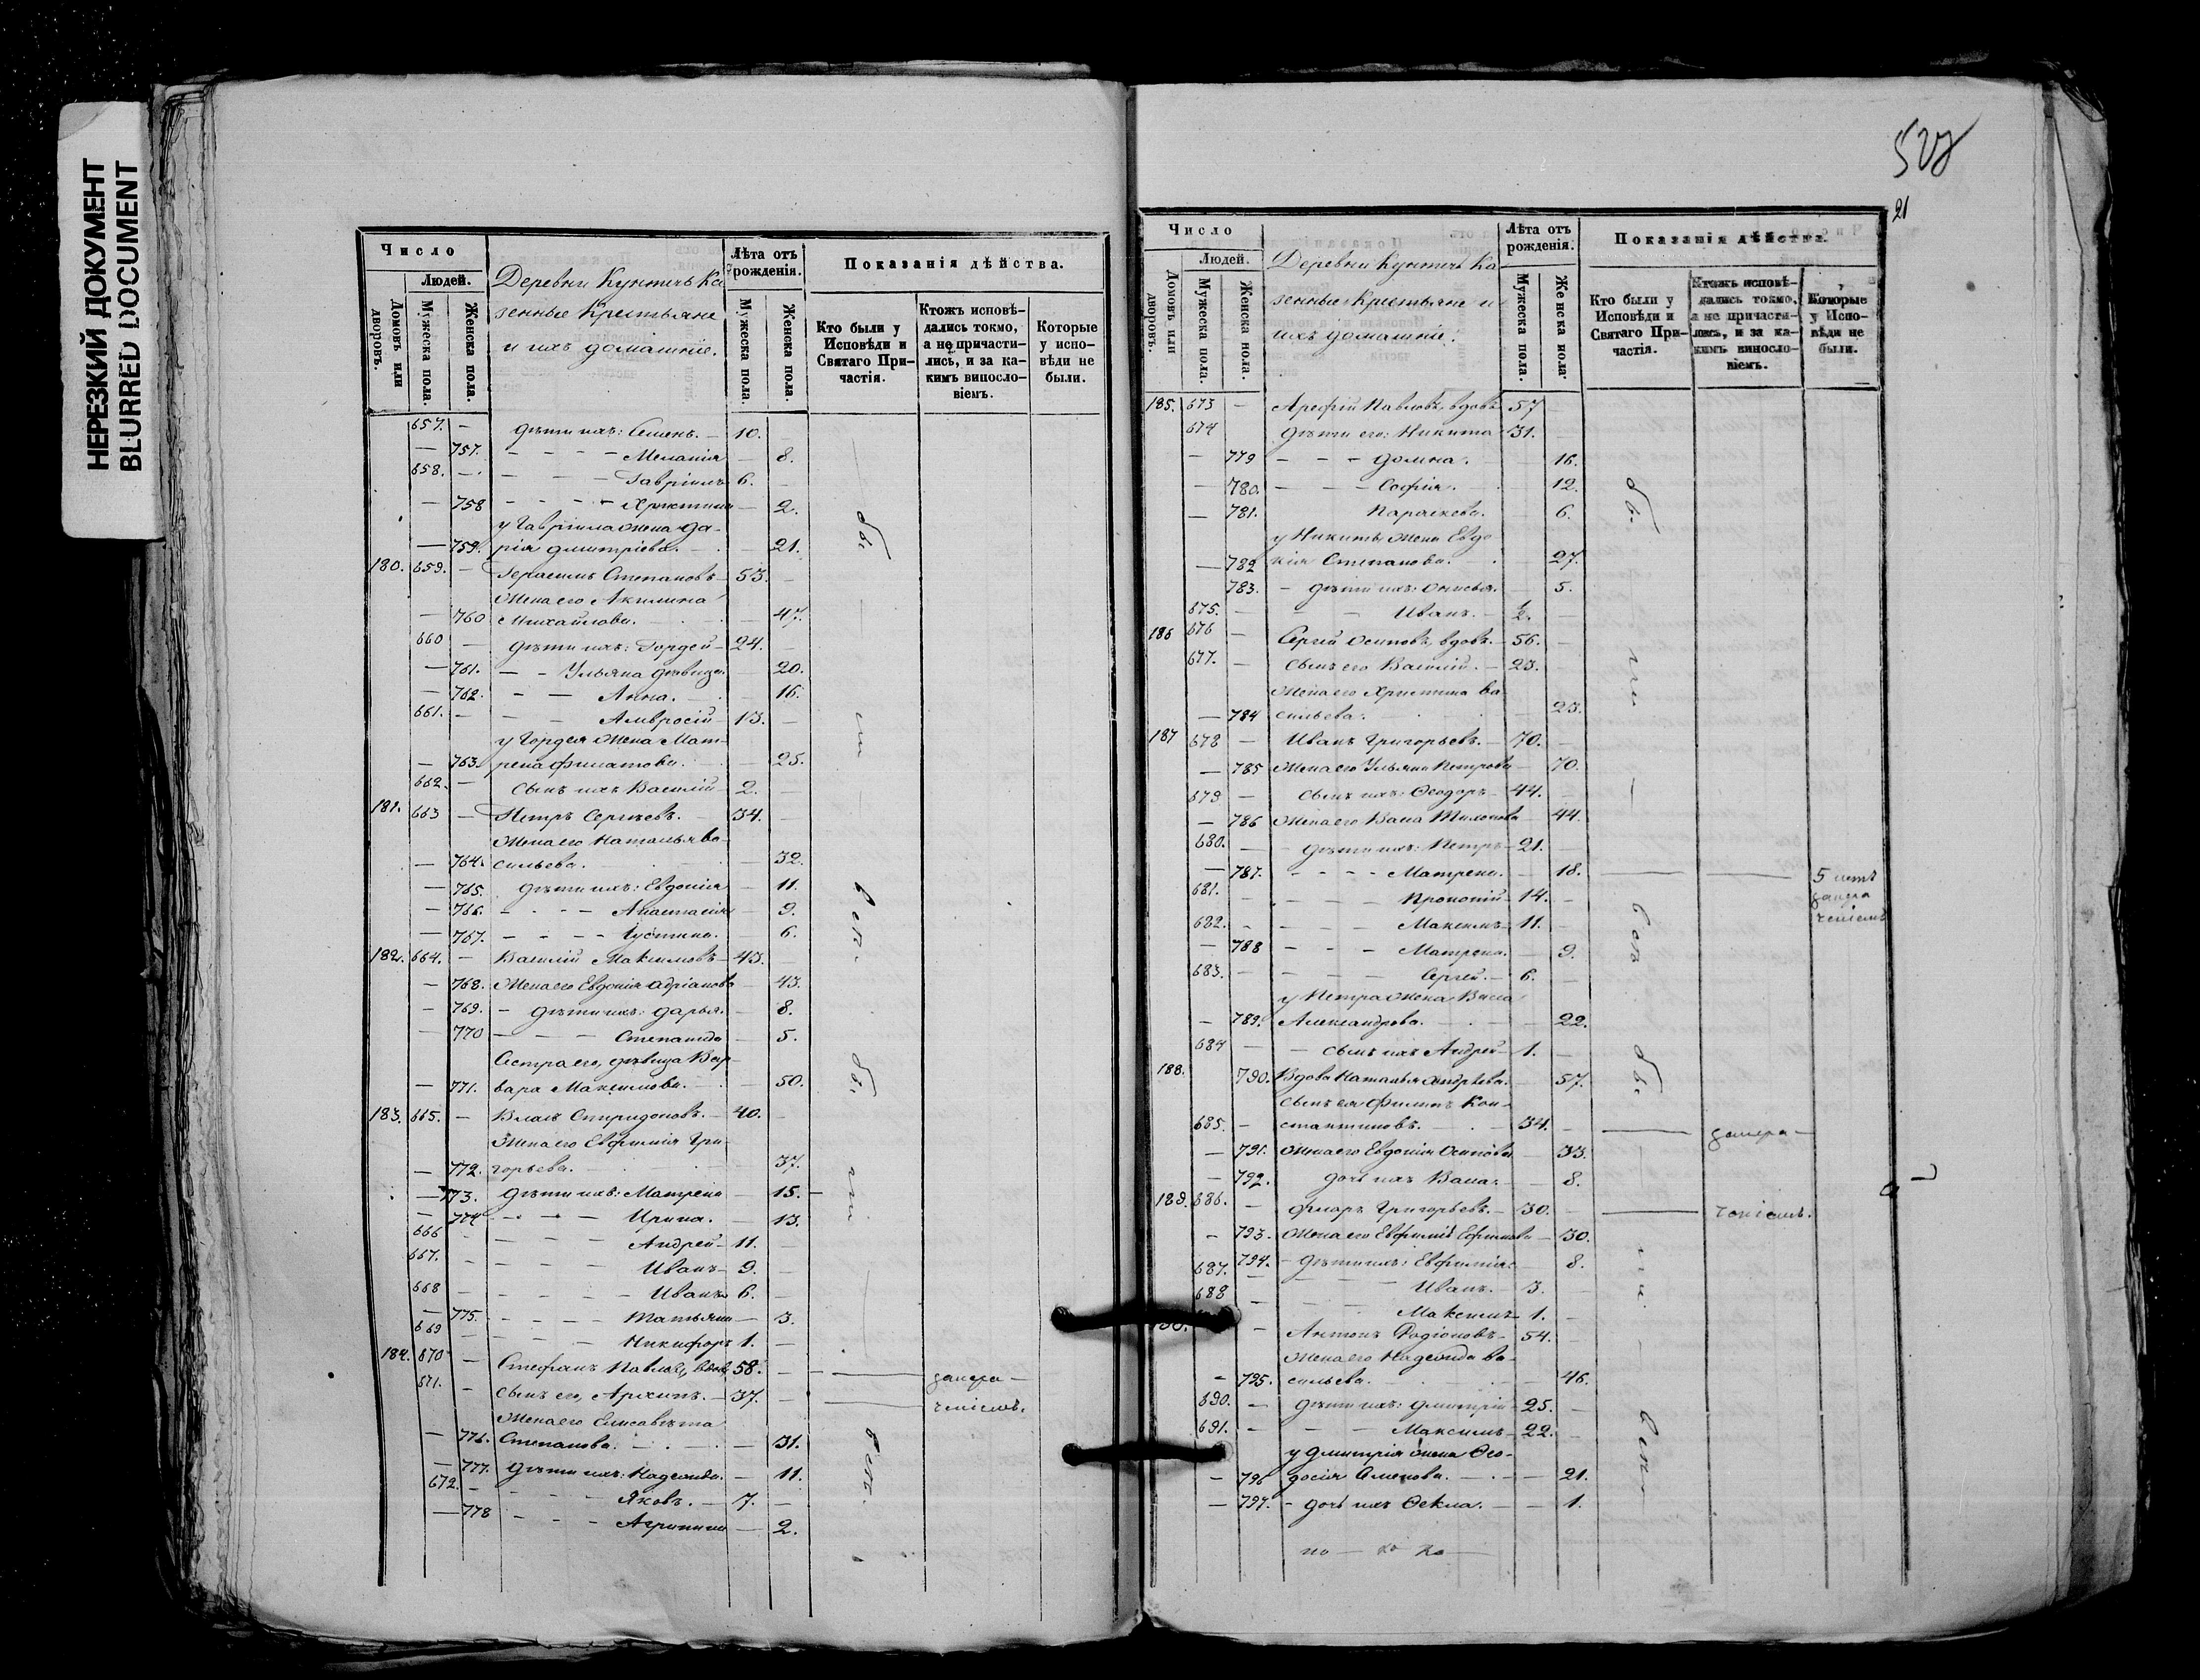 НЕРЕЗКИЙ ДОКУМЕНТ
BLURRED DOCUMENT
Число
Людей.
Домовъ или дворовъ.
Мужеска пола.
Женска пола.
Деревни Кунтичъ Ка
зенные Крестьяне
и ихъ домашніе.
Лѣта отъ рожденія.
Мужеска пола.
Женска пола.
Показанія дѣйства.
Кто были у Исповѣди и Святаго При-частія.
Ктожъ исповѣ-дались токмо, а не причасти-лись, и за ка-кимъ виносло-віемъ.
Которые у испо-вѣди не были.
657. — дѣти ихъ: Семенъ. — 10. —
— 757. — — — — Меланія — 8.
658. — — — Гавріилъ 6. —
— 758 — — — — Христина — 2.
у Гавріила жена Да-
— 759. рія Дмитріева. — 21.
180. 659. — Герасимъ Степановъ — 53. —
Жена его Акилина
— 760 Михайлова. — 47.
660 — дѣти ихъ: Гордей — 24. —
— 761. — — Ульяна дѣвица. — 20.
— 762. — — Анна. — 16.
661. — — Амвросій — 13. —
у Гордея жена Мат-
— 763. рена Филатова. — 25.
662. — сынъ ихъ Василій — 2. —
181. 663 — Петръ Сергѣевъ. — 34. —
Жена его Наталья Ва-
— 764. сильева. — 32.
— 765. дѣти ихъ: Евдокія — 11.
— 766. — — — Анастасія — 9.
— 767. — — — Іустина. — 6.
182. 664. — Василій Максимовъ — 43. —
— 768. Жена его Евдокія Адріанова — 43.
— 769. — дѣти ихъ: Дарья. — 8.
— 770 — — — Степанида — 5.
Сестра его, дѣвица Вар-
— 771. вара Максимова. — 50.
183. 665. — Власъ Спиридоновъ. — 40. —
Жена его Евфимія Гри-
— 772. горьева. — 37.
— 773. дѣти ихъ: Матрена — 15. —
— 774 — — — Ирина. — 13.
666 — — — — Андрей — 11. —
667. — — — — Иванъ — 9. —
668 — — — — Иванъ 6. —
— 775. — — — — Татьяна — 3.
669 — — — Никифоръ 1. —
184. 670 — Стефанъ Павловъ, вдовъ 58. — — —
671. — сынъ его, Архипъ. — 37. —
Жена его Елисавета
— 776. Степанова. — 31.
— 777. дѣти ихъ: Надежда. — 11.
672. — — — Яковъ. — 7. —
— 778 — — — Агрипина — 2.
бы
ли
у исп.
бы
ли
527
21
Число
Людей.
Домовъ или дворовъ.
Мужеска пола.
Женска пола.
Деревни Кунтичъ Ка
зенные Крестьяне и
ихъ домашніе.
Лѣта отъ рожденія.
Мужеска пола.
Женска пола.
Показанія дѣйства.
Кто были у Исповѣди и Святаго При-частія.
Ктожъ исповѣ-дались токмо, а не причасти-лись, и за ка-кимъ виносло-віемъ.
Которые у Испо-вѣди не были.
185. 673 — Арефій Павловъ, вдовъ 57 —
674 дѣти его: Никита 31. —
— 779 — — — Домна. — 16.
— 780. — — — Софія. — 12.
— 781. Параскева. — 6.
у Никиты жена Евдо
— 782 кія Степанова. — 27.
783. — дѣти ихъ: Онисья. — 5.
675. — — Иванъ. — ½. —
186 676 — Сергій Осиповъ, вдовъ. — 56. —
677. — сынъ его Василій. — 23. —
Жена его Христина Ва-
— 784 сильева. — 23.
187 678 — Иванъ Григорьевъ. — 70. —
— 785 Жена его Ульяна Петрова — 70.
679 — сынъ ихъ: Ѳеодоръ — 44. —
— 786 Жена его Васа Тихонова — 44.
680. — дѣти ихъ: Петръ — 21. —
— 787. — — — — Матрена. — 18. — —
681. — — — — Прокопій — 14. —
682. — — — — Максимъ — 11. —
— 788 — — — Матрена. — 9.
683. — — — Сергей. — 6. —
у Петра жена Васа
— 789. Александрова. — 22.
684 — — сынъ ихъ Андрей — 1. —
188. 790. Вдова Наталья Андрѣева. — 57.
сынъ ея Филипъ Кон-
685. — стантиновъ. — 34. —
— 791. Жена его Евдокія Осипова — 33.
— 792. дочь ихъ Васа. — 8.
189. 686. — Флоръ Григорьевъ. — 30. —
— 793. Жена его Евфимія Ефимова — 30.
794. — дѣти ихъ: Евфимія — 8.
687. — — — Иванъ. — 3. —
688 — — Максимъ 1. —
— Антонъ Родіоновъ — 54. —
Жена его Надежда Ва-
— 795. сильева. — 46.
690. — дѣти ихъ: Дмитрій — 25. —
691. — — — Максимъ — 22. —
у Дмитрія жена Ѳео-
— 796 досія Семенова. — 21.
— 797. — дочь ихъ Ѳекла. — 1.
бы
ли
бы
ли